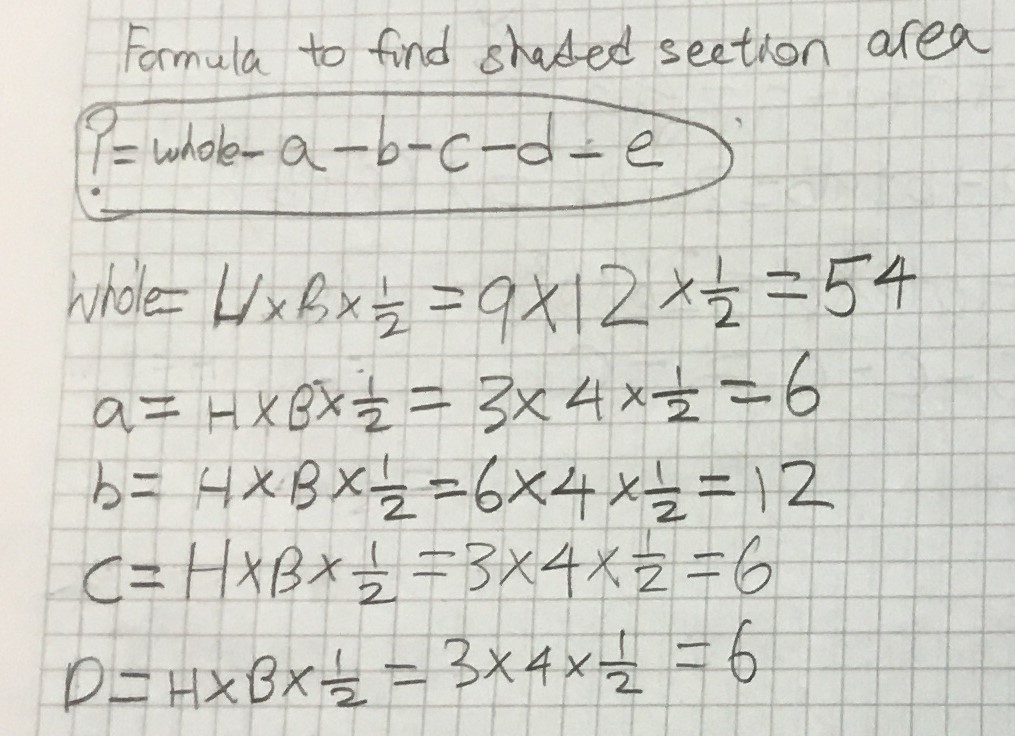 Formula to find shaded section area
?= whole - a - b - c - d - e
Whole= H x B x 1/2 = 9 x 12 x 1/2 = 54
a = H x B x 1/2 = 3 x 4 x 1/2 = 6
b = H x B x 1/2 = 6 x 4 x 1/2 = 12
C = H x B x 1/2 = 3 x 4 x 1/2 = 6
D = H x B x 1/2 = 3 x 4 x 1/2 = 6